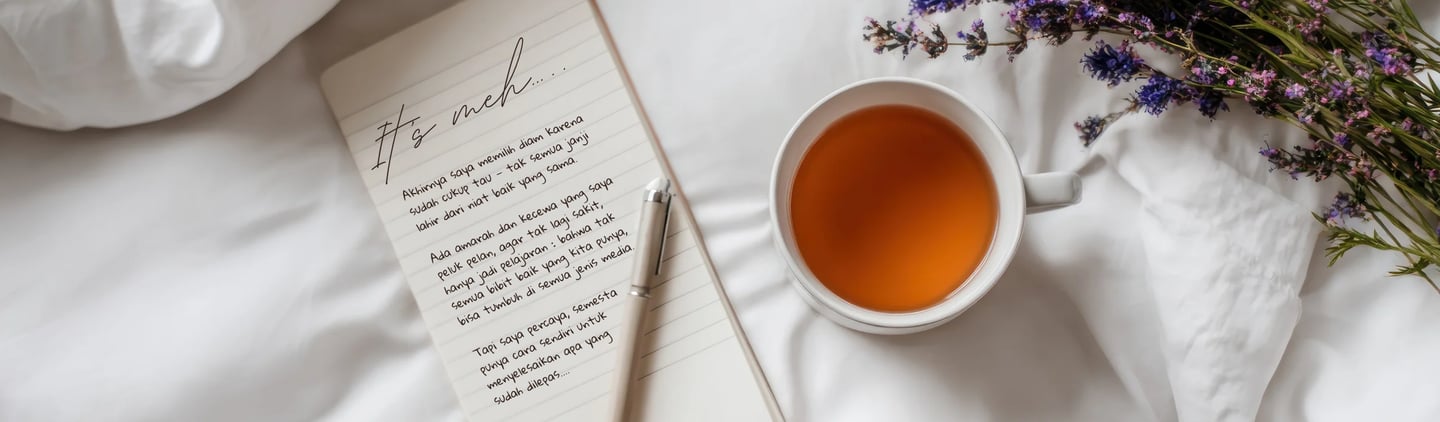 It's meh....
Akhirnya saya memilih diam karena
sudah cukup tau - tak semua janji
lahir dari niat baik yang sama.
Ada amarah dan kecewa yang saya
peluk pelan, agar tak lagi sakit,
hanya jadi pelajaran : bahwa tak
semua bibit baik yang kita punya,
bisa tumbuh di semua jenis media.
Tapi saya percaya, semesta
punya cara sendiri untuk
menyelesaikan apa yang
sudah dilepas....